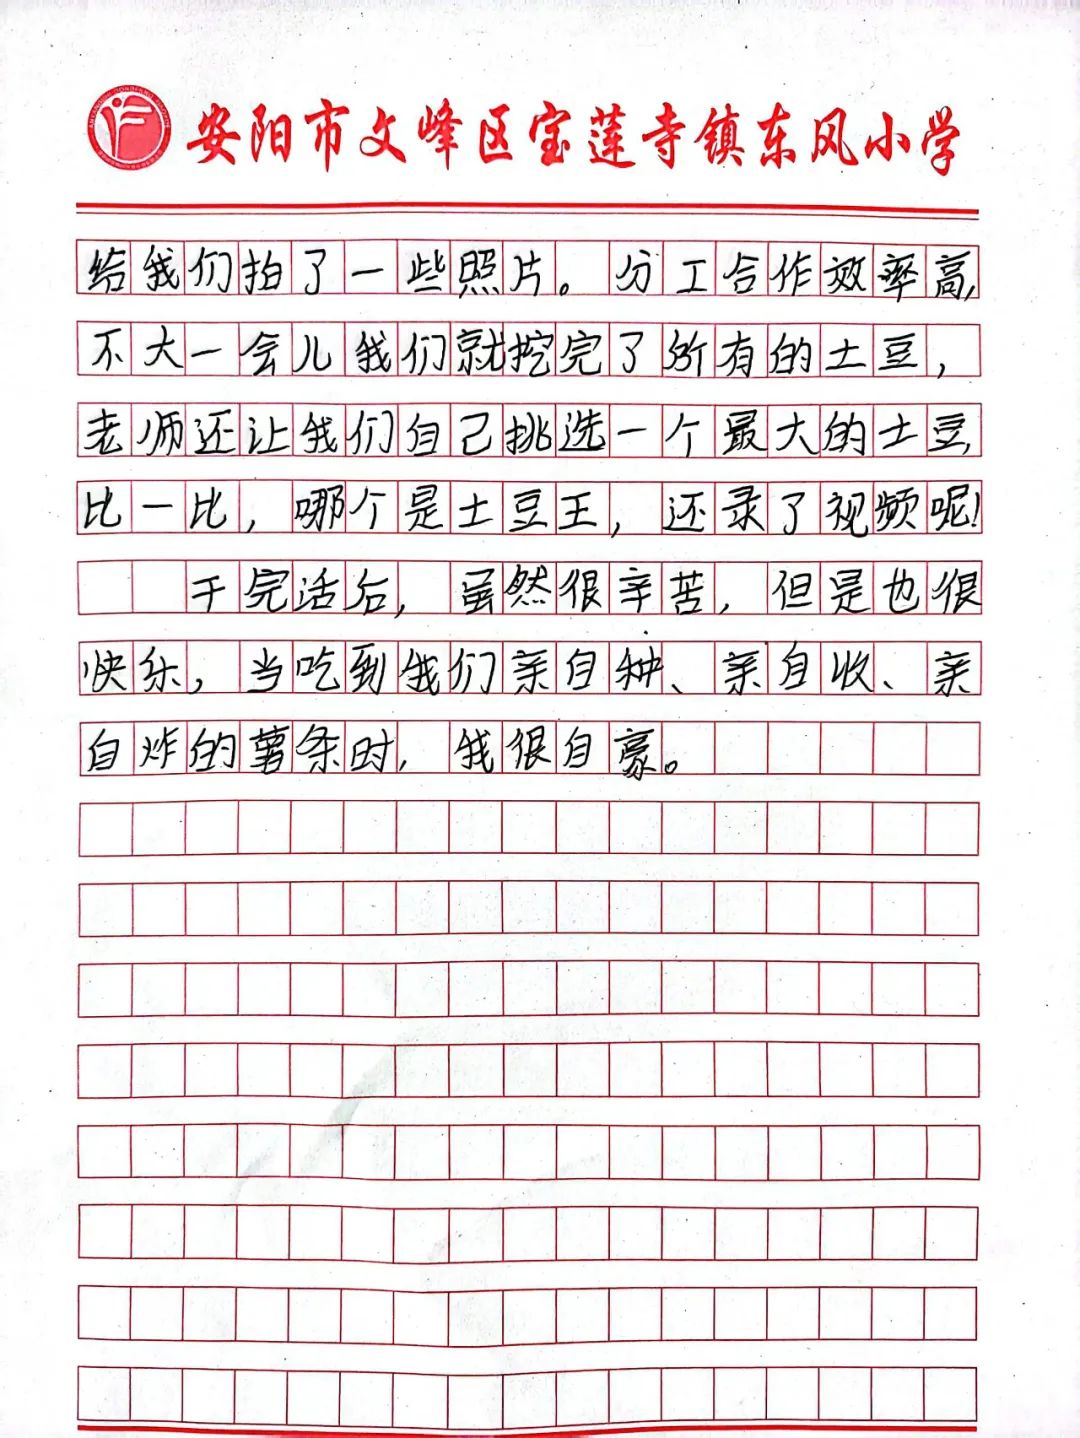 安阳市文峰区宝莲寺镇东风小学
给我们拍了一些照片。分工合作效率高,
不大一会儿我们就挖完了所有的土豆,
老师还让我们自己挑选一个最大的土豆,
比一比,哪个是土豆王,还录了视频呢!
干完活后,虽然很辛苦,但是也很
快乐,当吃到我们亲自种、亲自收、亲
自炸的薯条时,我很自豪。